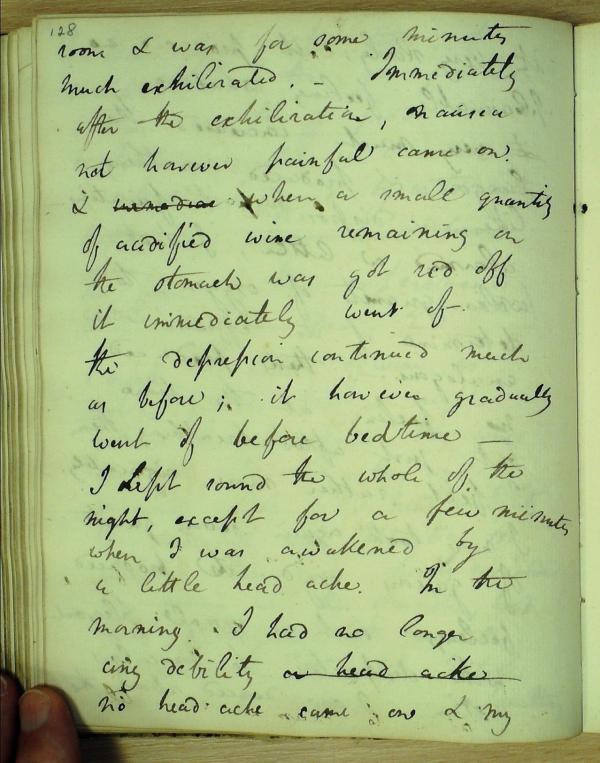 128
room & was for some minutes
much exhilirated. - Immediately
after the exhiliration, nausea
not however painful came on.
& immediat when a small quantity
of acidified wine remaining on
the stomach was got rid off
it immediately went of.
the depression continued much
as before; it however gradually
went of before bedtime —
I slept sound the whole of the
night, except for a few minutes
when I was awakened by
a little head ache. In the
morning. I had no longer
any debility or head ache
no head ache came on & my